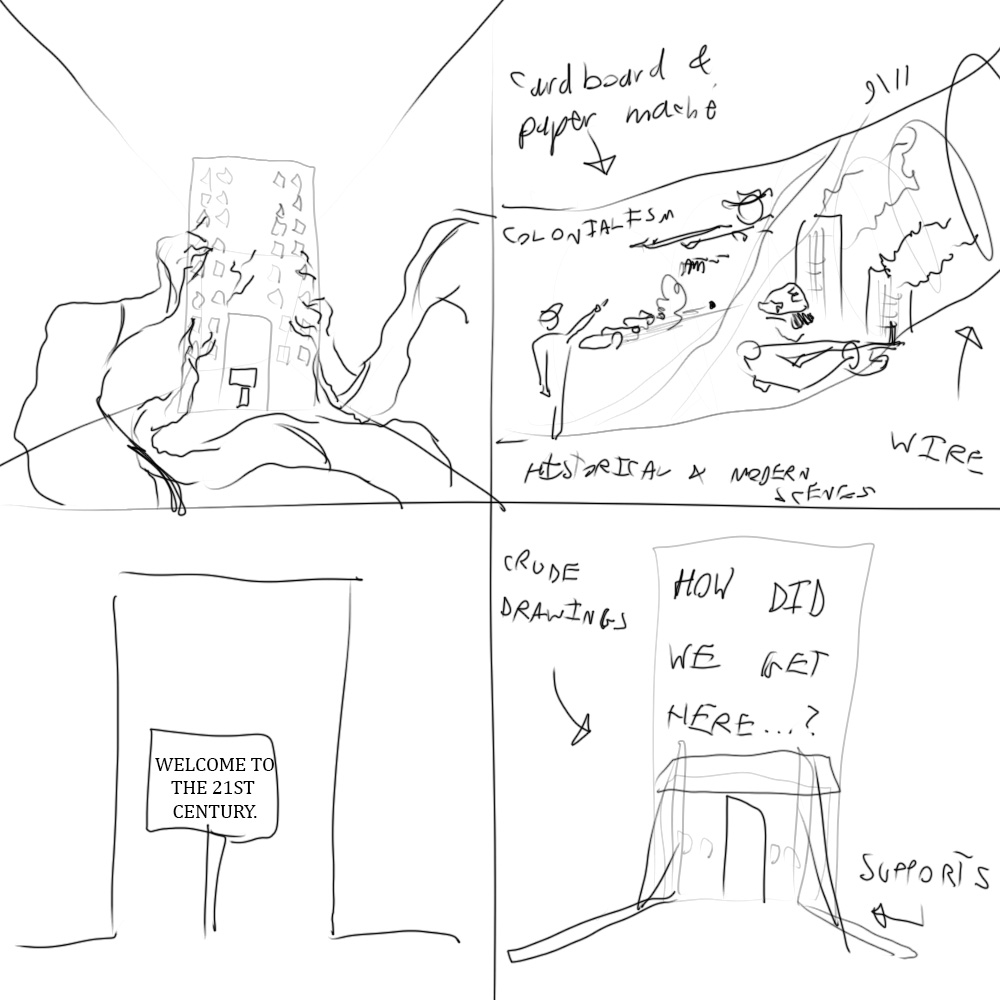 Cardboard &
paper maché
9/11
COLONIALISM
WIRE
HISTORICAL & MODERN
SCENES
WELCOME TO
THE 21ST
CENTURY.
CRUDE
DRAWINGS
HOW DID
WE GET
HERE...?
SUPPORTS